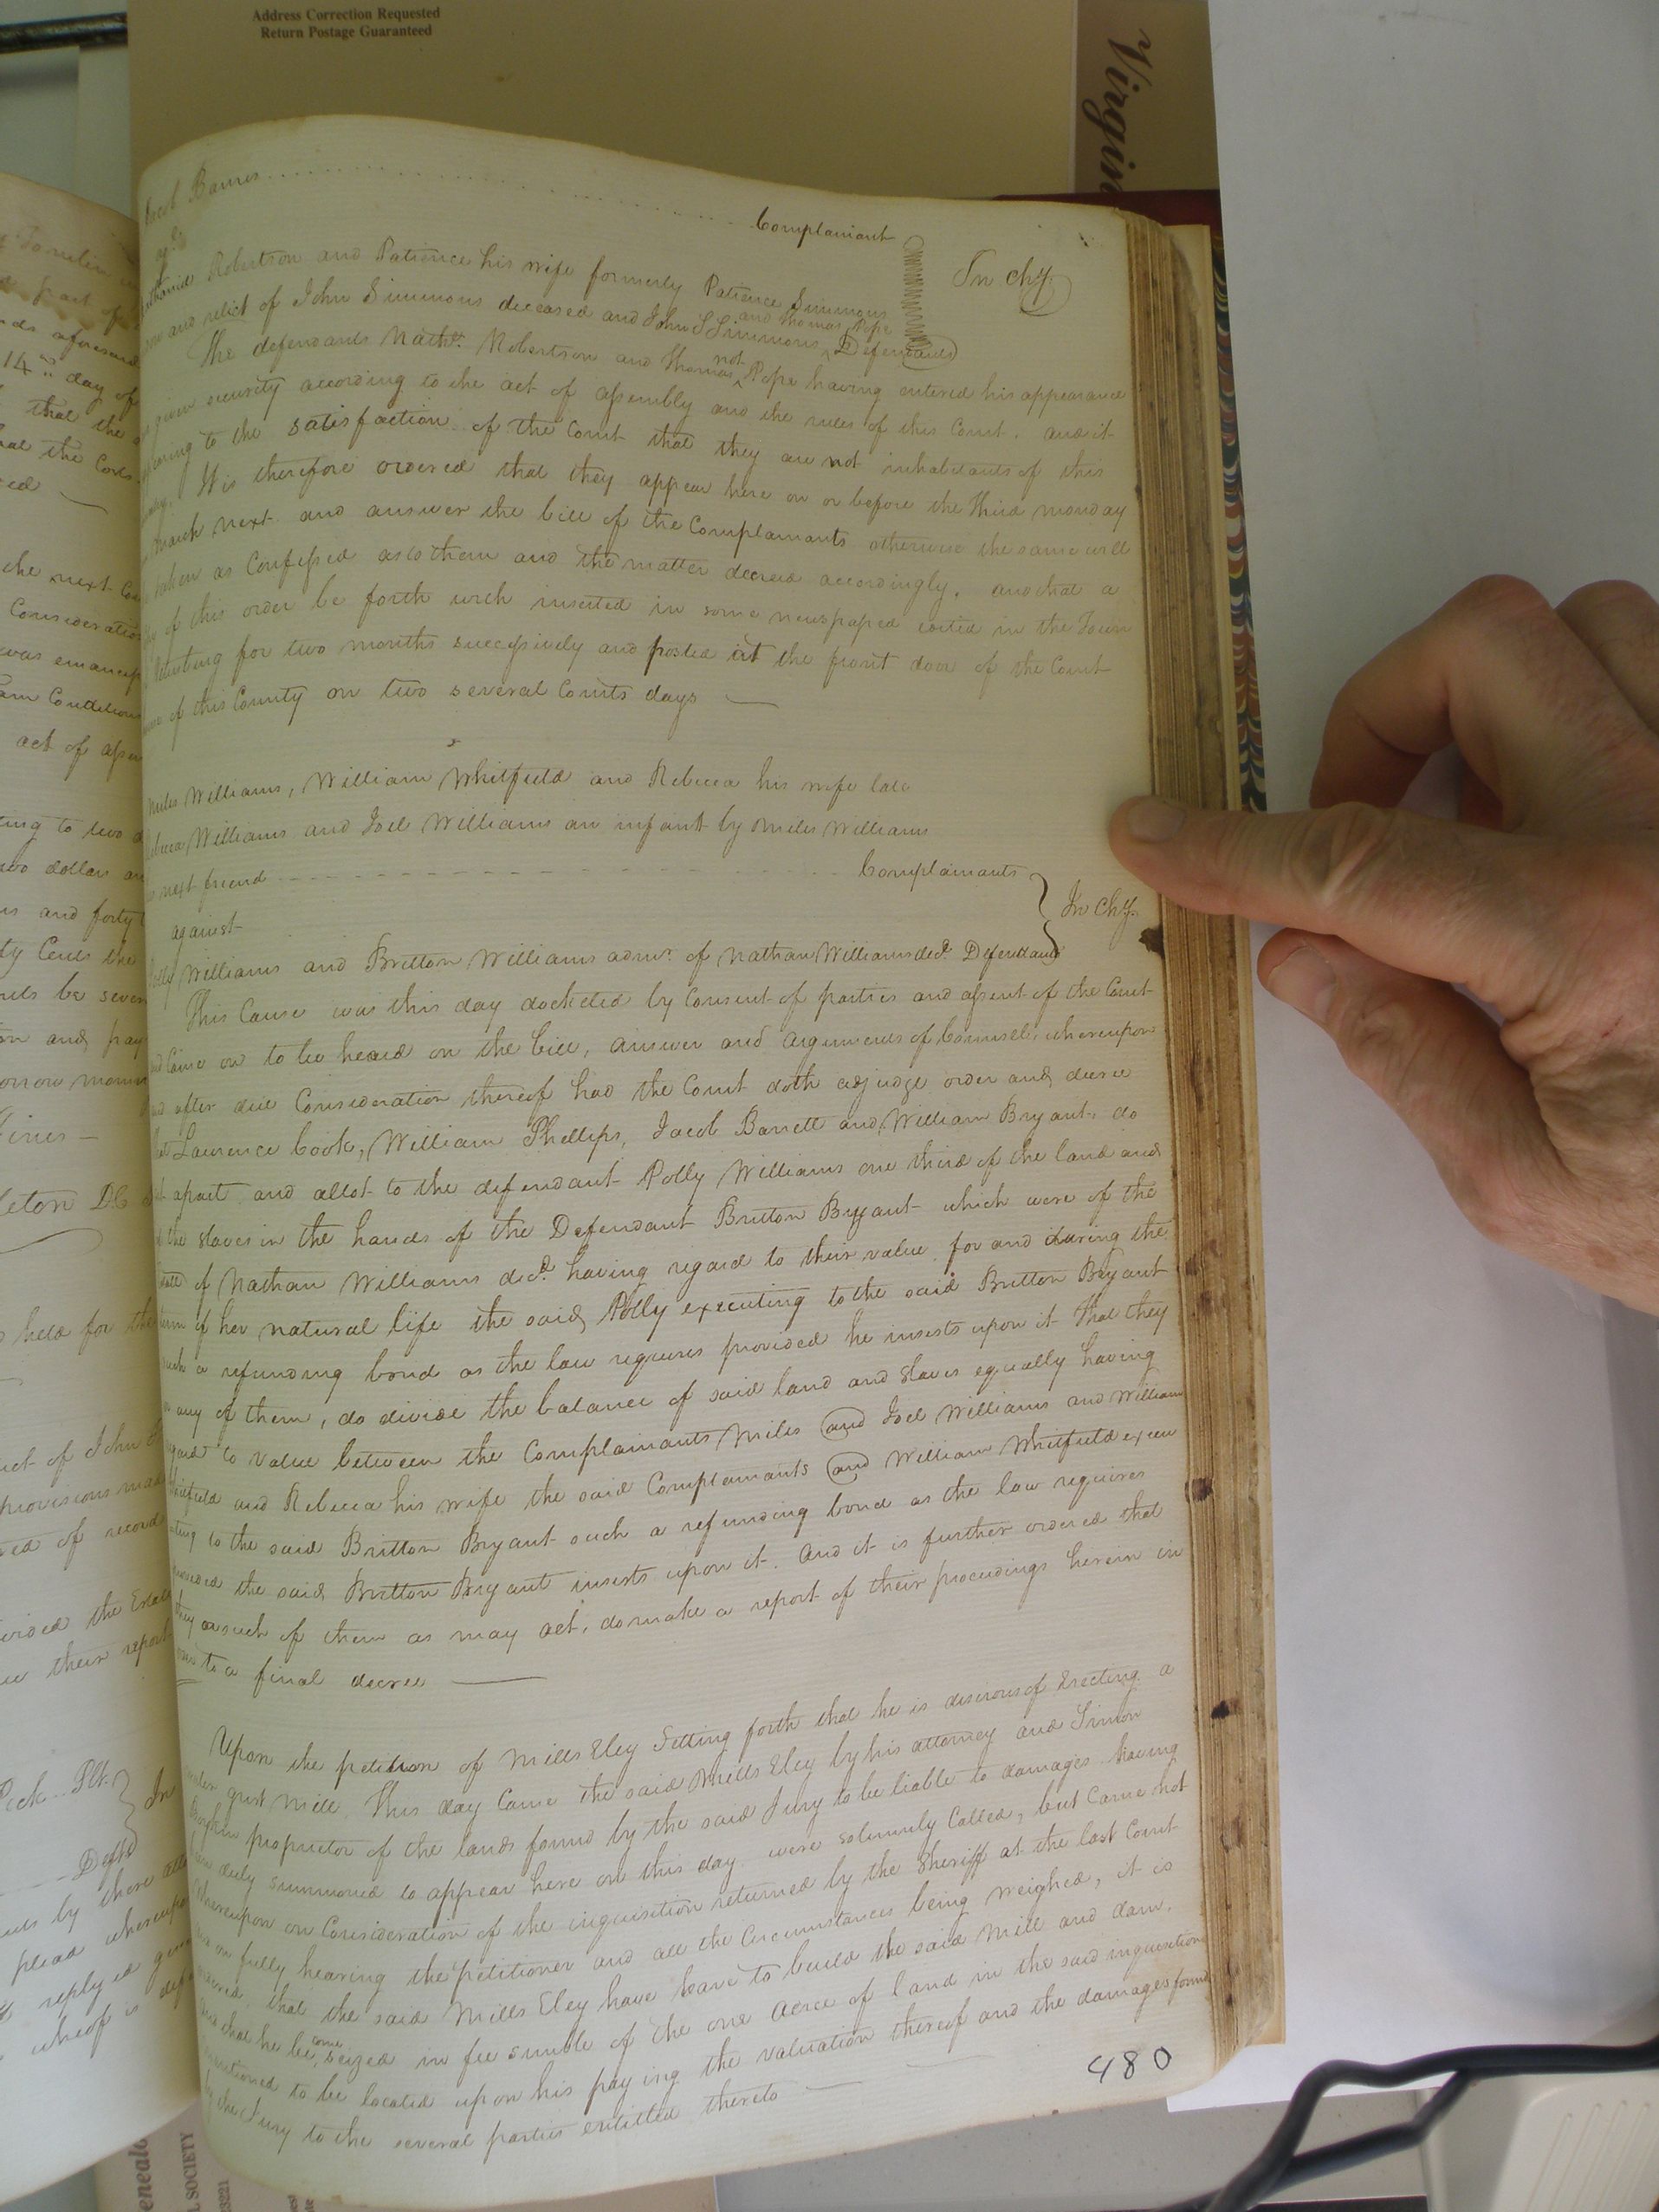 Address Correction Requested
Return Postage Guaranteed
Virgin
Barnes
Complainant
agt.
Robertson and Patience his wife formerly Patience Simmons
In chy.
and relict of John Simmons deceased and John S Simmons and Thomas Pope Defendants
The defendants Nathl. Robertson and Thomas Pope not having entered his appearance
given security according to the act of assembly and the rules of this Court. and it
to the satisfaction of the Court that they are not inhabitants of this
It is therefore ordered that they appear here on or before the third monday
March next and answer the bill of the Complainants otherwise the same will
taken as Confessed as to them and the matter decreed accordingly. and that a
of this order be forthwith inserted in some newspaper edited in the Town
for two months successively and posted at the front door of the Court
of this County on two several Courts days
Miles Williams, William Whitfield and Rebecca his wife late
Williams and Joel Williams an infant by Miles Williams
next friend Complainants
against
In chy.
Williams and Britton Williams admr. of Nathan Williams decd. Defendants
This Cause was this day docketed by Consent of parties and assent of the Court
and Came on to be heard on the bill, answer and arguments of Counsel, whereupon
and after due Consideration thereof had the Court doth adjudge order and decree
that Laurence Cook, William Phillips, Jacob Barrett and William Bryant, do
apart and allot to the defendant Polly Williams one third of the land and
the slaves in the hands of the Defendant Britton Bryant which were of the
of Nathan Williams decd. having regard to their value for and during the
term of her natural life the said Polly executing to the said Britton Bryant
such a refunding bond as the law requires provided he insists upon it That they
or any of them, do divide the balance of said land and slaves equally having
regard to value between the Complainants Miles and Joel Williams and William
Whitfield and Rebecca his wife the said Complainants and William Whitfield execu
ting to the said Britton Bryant such a refunding bond as the law requires
provided the said Britton Bryant insists upon it. And it is further ordered that
they or such of them as may act, do make a report of their proceedings herein in
to a final decree
Upon the petition of Mills Eley Setting forth that he is desirous of Erecting a
water grist mill. This day Came the said Mills Eley by his attorney and Simon
proprietor of the lands found by the said Jury to be liable to damages having
been duly summoned to appear here on this day were solemnly Called, but Came not
Whereupon on Consideration of the inquisition returned by the Sheriff at the last Court
and on fully hearing the petitioner and all the Circumstances being weighed, it is
ordered that the said Mills Eley have leave to build the said Mill and dam,
and that he become seized in fee simple of the one acre of land in the said inquisition
mentioned to be located upon his paying the valuation thereof and the damages found
by the Jury to the several parties entitled thereto
480
14th day of
that the
the next
Consideration
Condition
act of
ting to two
two dollars
and forty
be seven
and pay
held for the
of John
provisions made
of record
divided the
their report
Plt.
In
Deft
by there
plead whereupo
SOCIETY
23221